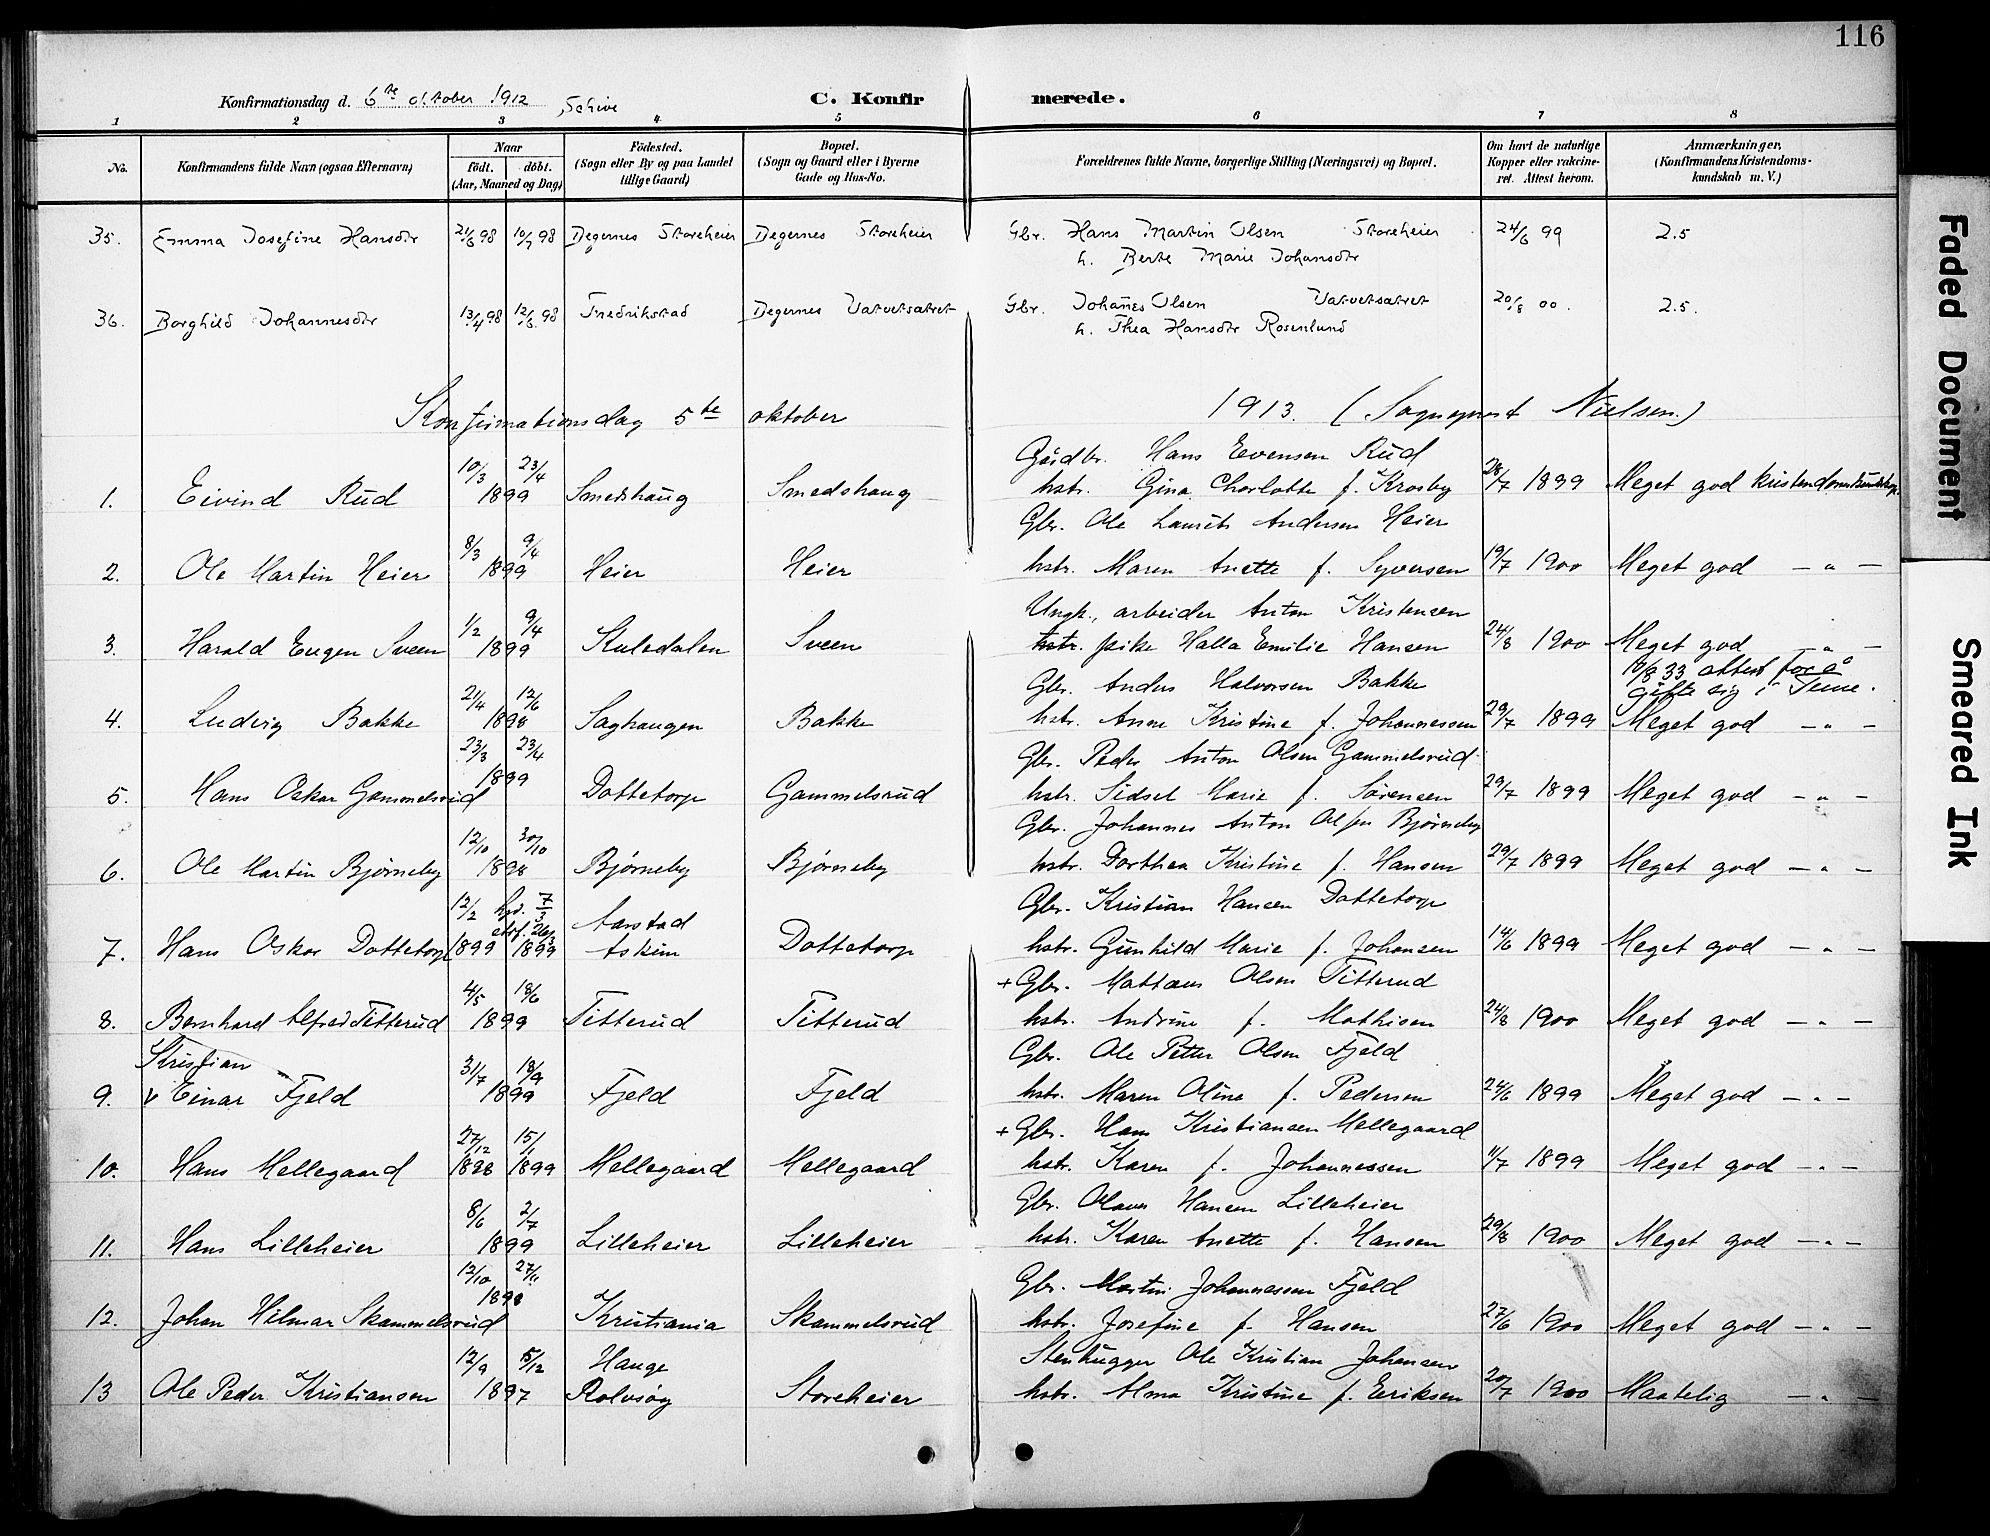 116
Konfirmationsdag d. 6te oktober 1912, Schive C. Konfir merede.
1 2 3 4 5 6 7 8
No. Konfirmandens fulde Navn (ogsaa Efternavn) Naar født. døbt. (Aar, Maaned og Dag) Fødested. (Sogn eller By og paa Landet tillige Gaard) Bopæl. (Sogn og Gaard eller i Byerne Gade og Hus-No. Forældrenes fulde Navne, borgerlige Stilling (Næringsvei) og Bopæl. Om havt de naturlige Kopper eller vakcineret. Attest herom. Anmærkninger. (Konfirmandens Kristendomskundskab m. V.)
35. Emma Josefine Hansdtr 21/6 98 10/7 98 Degernes Storeheier Degernes Storeheier Gbr. Hans Martin Olsen Storeheier 24/6 99 2.5
h. Berte Marie Johansdtr
36. Borghild Johannesdtr 13/4 98 12/6 98 Fredrikstad Degernes Vatvetsætret Gbr. Johañes Olsen Vatvetsætret 20/8 00. 2.5.
h. Thea Hansdtr Rosenlund
Konfirmationsdag 5te oktober 1913. (Sogneprest Nielsen.)
10/3 23/4 Gårdbr. Hans Evensen Rud
1. Eivind Rud 1899 Smedshaug Smedshaug hstr. Gina Charlotte f. Krosby 28/7 1899 Meget god kristendomskundskap.
8/3 9/4 Gbr. Ole Laurits Andersen Heier
2. Ole Martin Heier 1899 Heier Heier hstr. Maren Anette f. Syversen 19/7 1900 Meget god — " —
1/2 9/4 Ungk., arbeider Anton Kristensen
3. Harald Eugen Sveen 1899 Skuledalen Sveen hstr. pike Halla Emilie Hansen 24/8 1900 Meget god — " —
10/8 33 attest for å gifte sig i
21/4 12/6 Gbr. Anders Halvorsen Bakke
4. Ludvig Bakke 1898 Saghaugen Bakke hstr. Anne Kristine f. Johannessen 29/7 1899 Meget god — " —
23/3 23/4 Gbr. Peder Anton Olsen Gammelsrud
5. Hans Oskar Gammelsrud 1899 Dottetorp Gammelsrud hstr. Sidsel Marie f. Sørensen 29/7 1899 Meget god — " —
12/10 30/10 Gbr. Johannes Anton Olsen Bjørneby
6. Ole Martin Bjørneby 1898 Bjørneby Bjørneby hstr. Dorthea Kristine f. Hansen 29/7 1899 Meget god — " —
12/2 hjd. 7/3 Aarstad Gbr. Kristian Hansen Dottetorp
7. Hans Oskar Dottetorp 1899 1899 Askim Dottetorp hstr. Gunhild Marie f. Johansen 14/6 1899 Meget god — " —
4/5 18/6 + Gbr. Mattæus Olsen Titterud
8. Bernhard Alfred Titterud 1899 Titterud Titterud hstr. Andrine f. Mathisen 24/8 1900 Meget god — " —
Kristian 31/7 18/9 Gbr. Ole Petter Olsen Fjeld
9. v Einar Fjeld 1899 Fjeld Fjeld hstr. Maren Oline f. Pedersen 24/6 1899 Meget god — " —
27/12 15/1 + Gbr. Hans Kristiansen Mellegaard
10. Hans Mellegaard 1898 1899 Mellegaard Mellegaard hstr. Karen f. Johannessen 11/7 1899 Meget god — " —
8/6 2/7 Gbr. Olaus Hansen Lilleheier
11. Hans Lilleheier 1899 Lilleheier Lilleheier hstr. Karen Anette f. Hansen 29/8 1900 Meget god — " —
12/10 27/11 Gbr. Martin Johannessen Fjeld
12. Johan Hilmar Skammelsrud 1898 Kristiania Skammelsrud hstr. Josefine f. Hansen 27/6 1900 Meget god — " —
12/9 5/12 Hauge Stenhugger Ole Kristian Johansen
13 Ole Peder Kristiansen 1897 Rolvsøy Storeheier hstr. Alma Kristine f. Eriksen 20/7 1900 Maatelig — " —
Faded Document
Smeared Ink